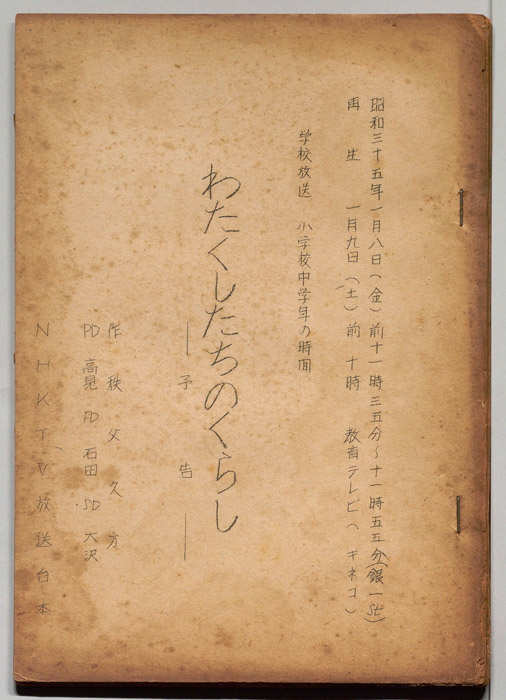 昭和三十五年一月八日(金)前十一時三五分～十一時五五分(銀一St)
再生 一月九日(土)前十時 教育テレビ(キネコ)
学校放送 小学校中学年の時間
わたくしたちのくらし
―予告―
作 秩父久方
PD 高見 FD 石田 SD 大沢
NHKTV放送台本